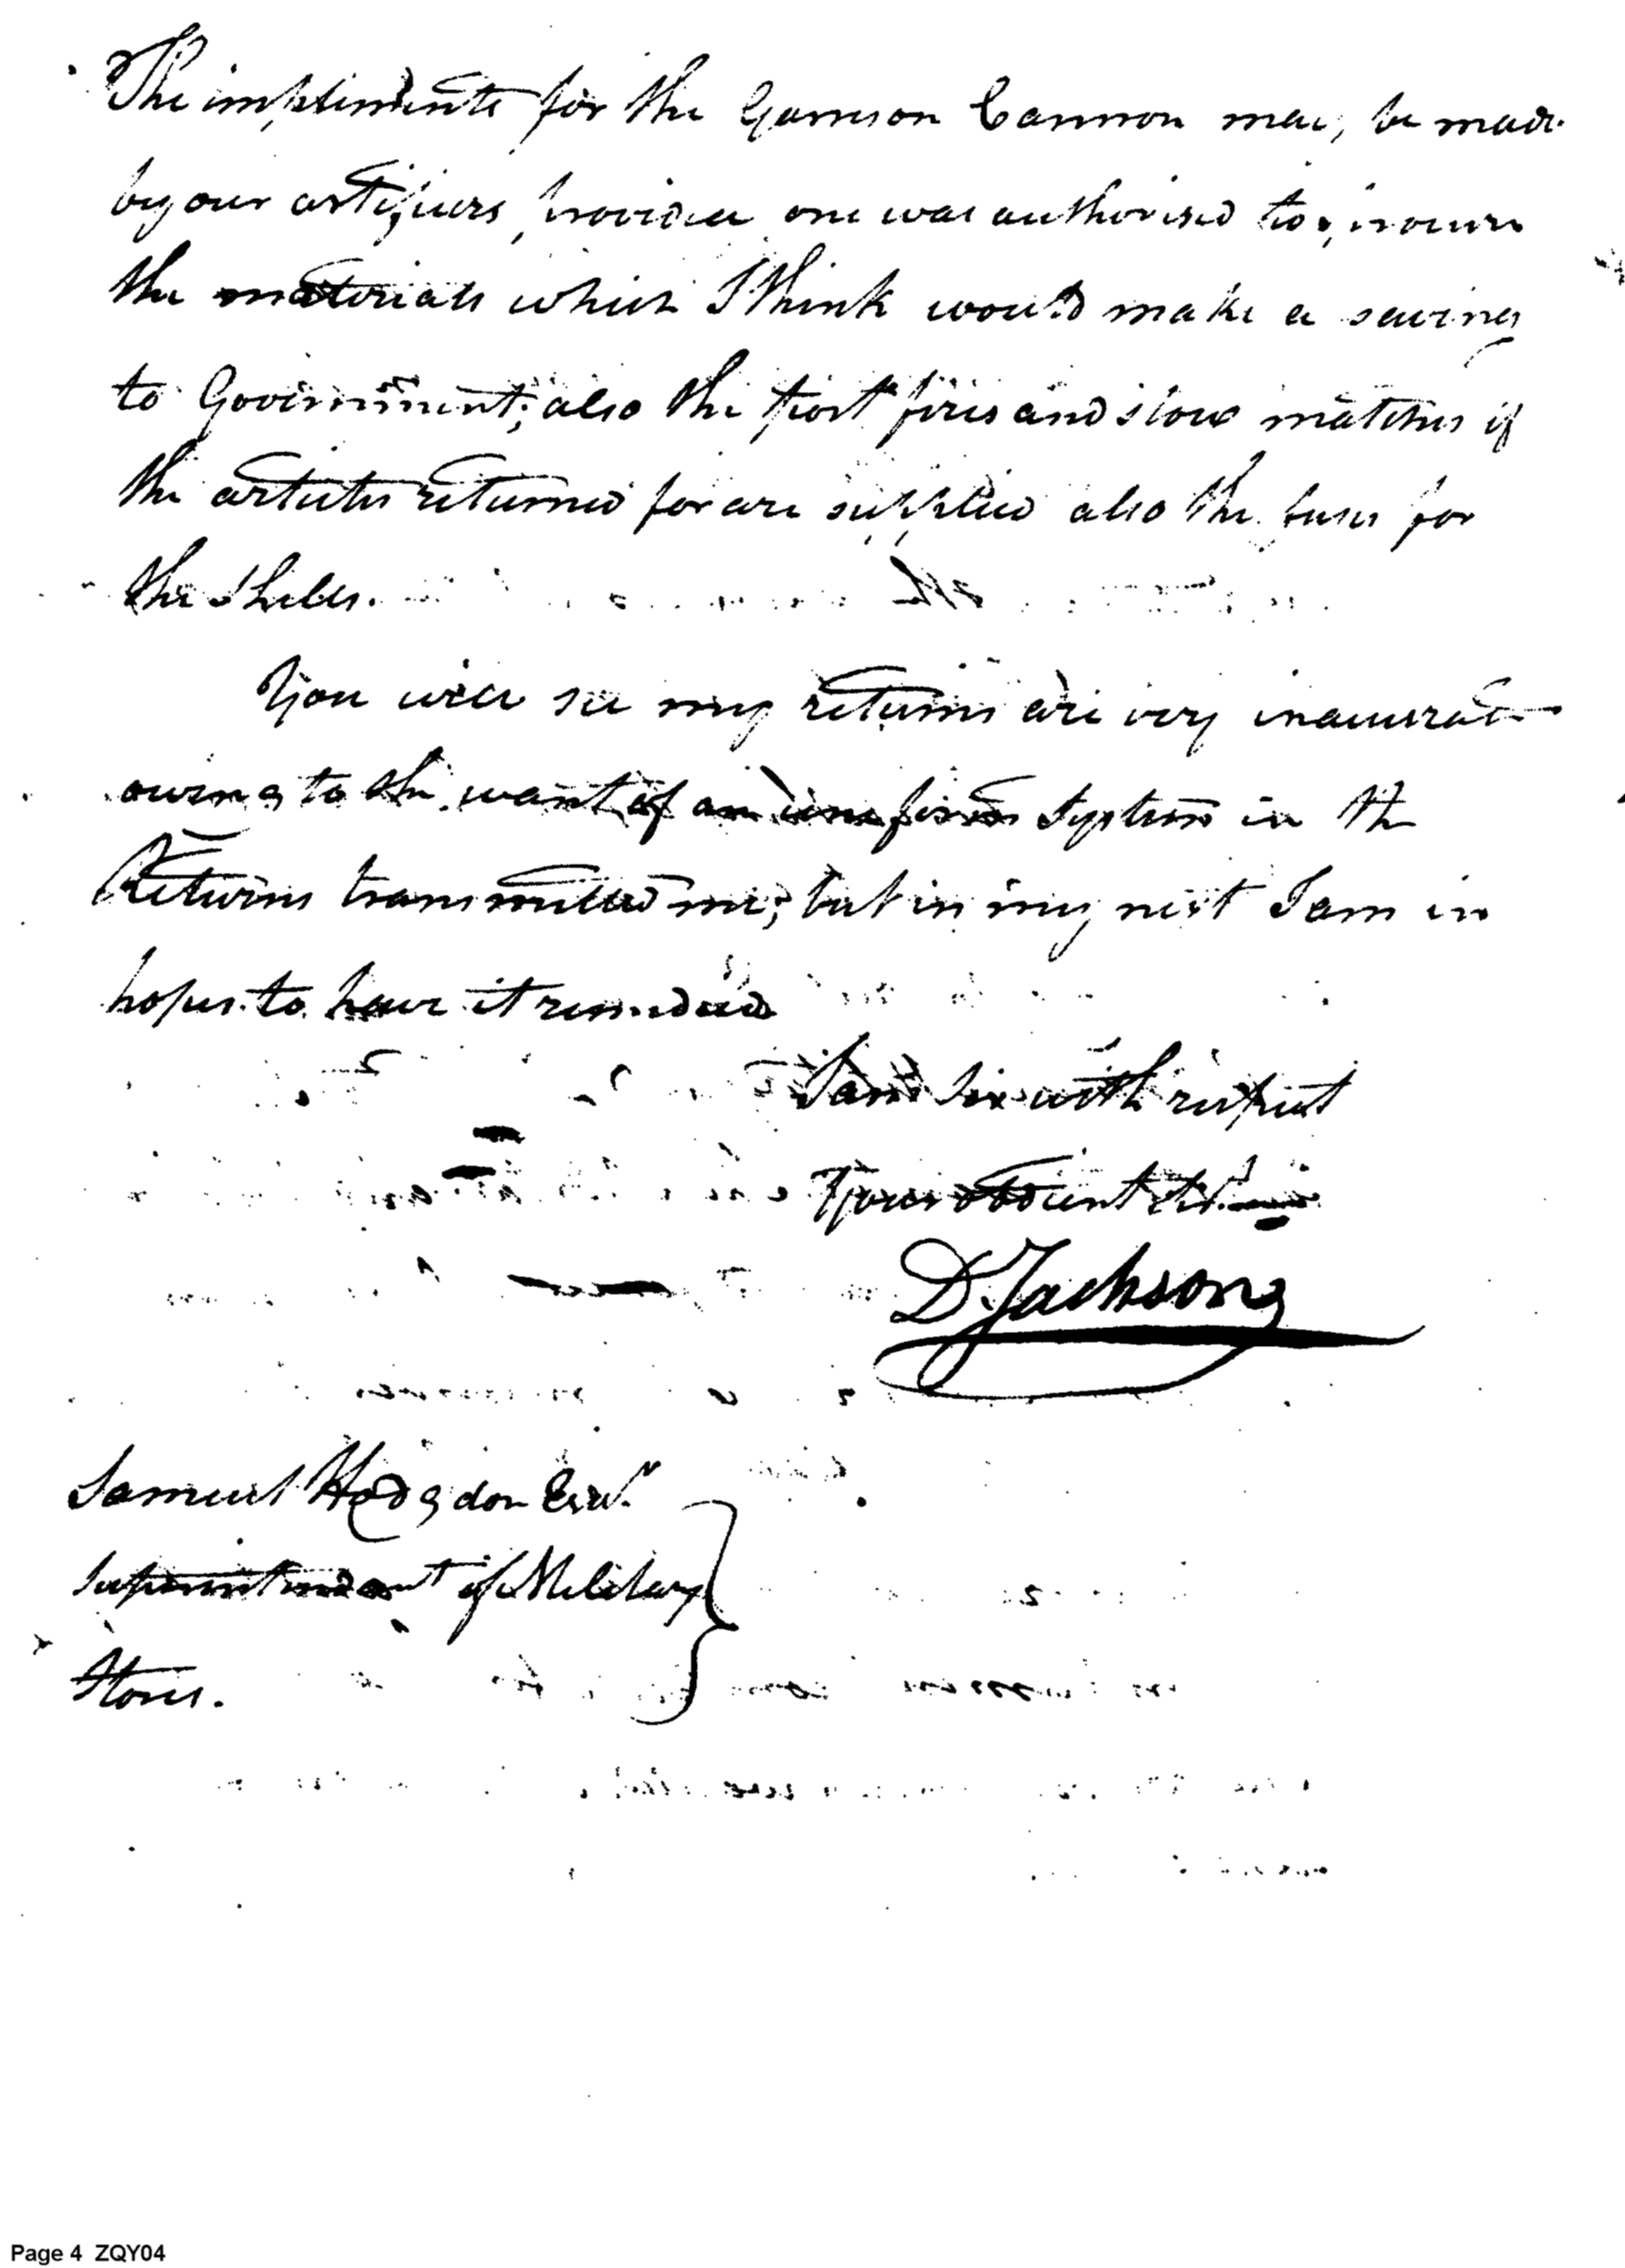 The implements for the Garrison Cannon may be made
by our artificers, provided one was authorised to procure
the materials which I think would make a saving
to Government; also the port fires and slow matches if
the articles returned for are supplied also the fuses for
the Shells.
You will see my returns are very inaccurate
owing to the want of an uniform System in the
Returns transmitted me; but in my next I am in
hopes to have it remedied
I am Sir with respect
Your obedient
D. Jackson
Samuel Hodgdon Esqr.
Superintendent of Military
Stores.
Page 4 ZQY04